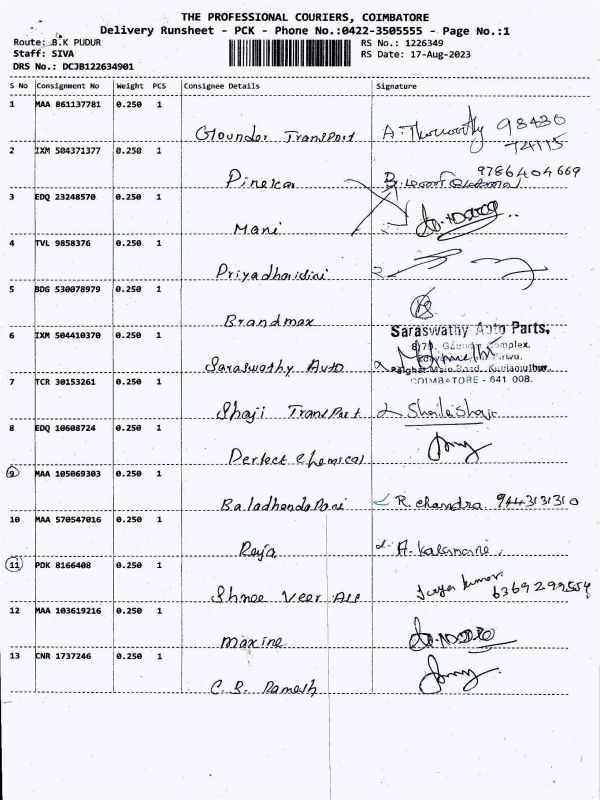 THE PROFESSIONAL COURIERS, COIMBATORE
Delivery Runsheet - PCK - Phone No.:0422-3505555 - Page No.:1
Route: B.K PUDUR RS No.: 1226349
Staff: SIVA RS Date: 17-Aug-2023
DRS No.: DCJB122634901
S No Consignment No Weight PCS Consignee Details Signature
1 MAA 861137781 0.250 1
Gounder Transport 98430
74115
2 IXM 504371377 0.250 1
9786404669
3 EDQ 23248570 0.250 1
Mani
4 TVL 9858376 0.250 1
Priyadharidini
5 BDG 530078979 0.250 1
Brandmax
Saraswathy Auto Parts,
6 IXM 504410370 0.250 1
Saraswathy Auto
COIMBATORE - 641 008.
7 TCR 30153261 0.250 1
Shaji Transpart Shaileshaji
8 EDQ 10608724 0.250 1
Perfect Chemical
9 MAA 105069303 0.250 1
R. Chandra 9443131310
10 MAA 570547016 0.250 1
Raja A. Kalamani
11 PDK 8166408 0.250 1
Shree Veer
12 MAA 103619216 0.250 1
Maxine
13 CNR 1737246 0.250 1
C. R. Ramesh